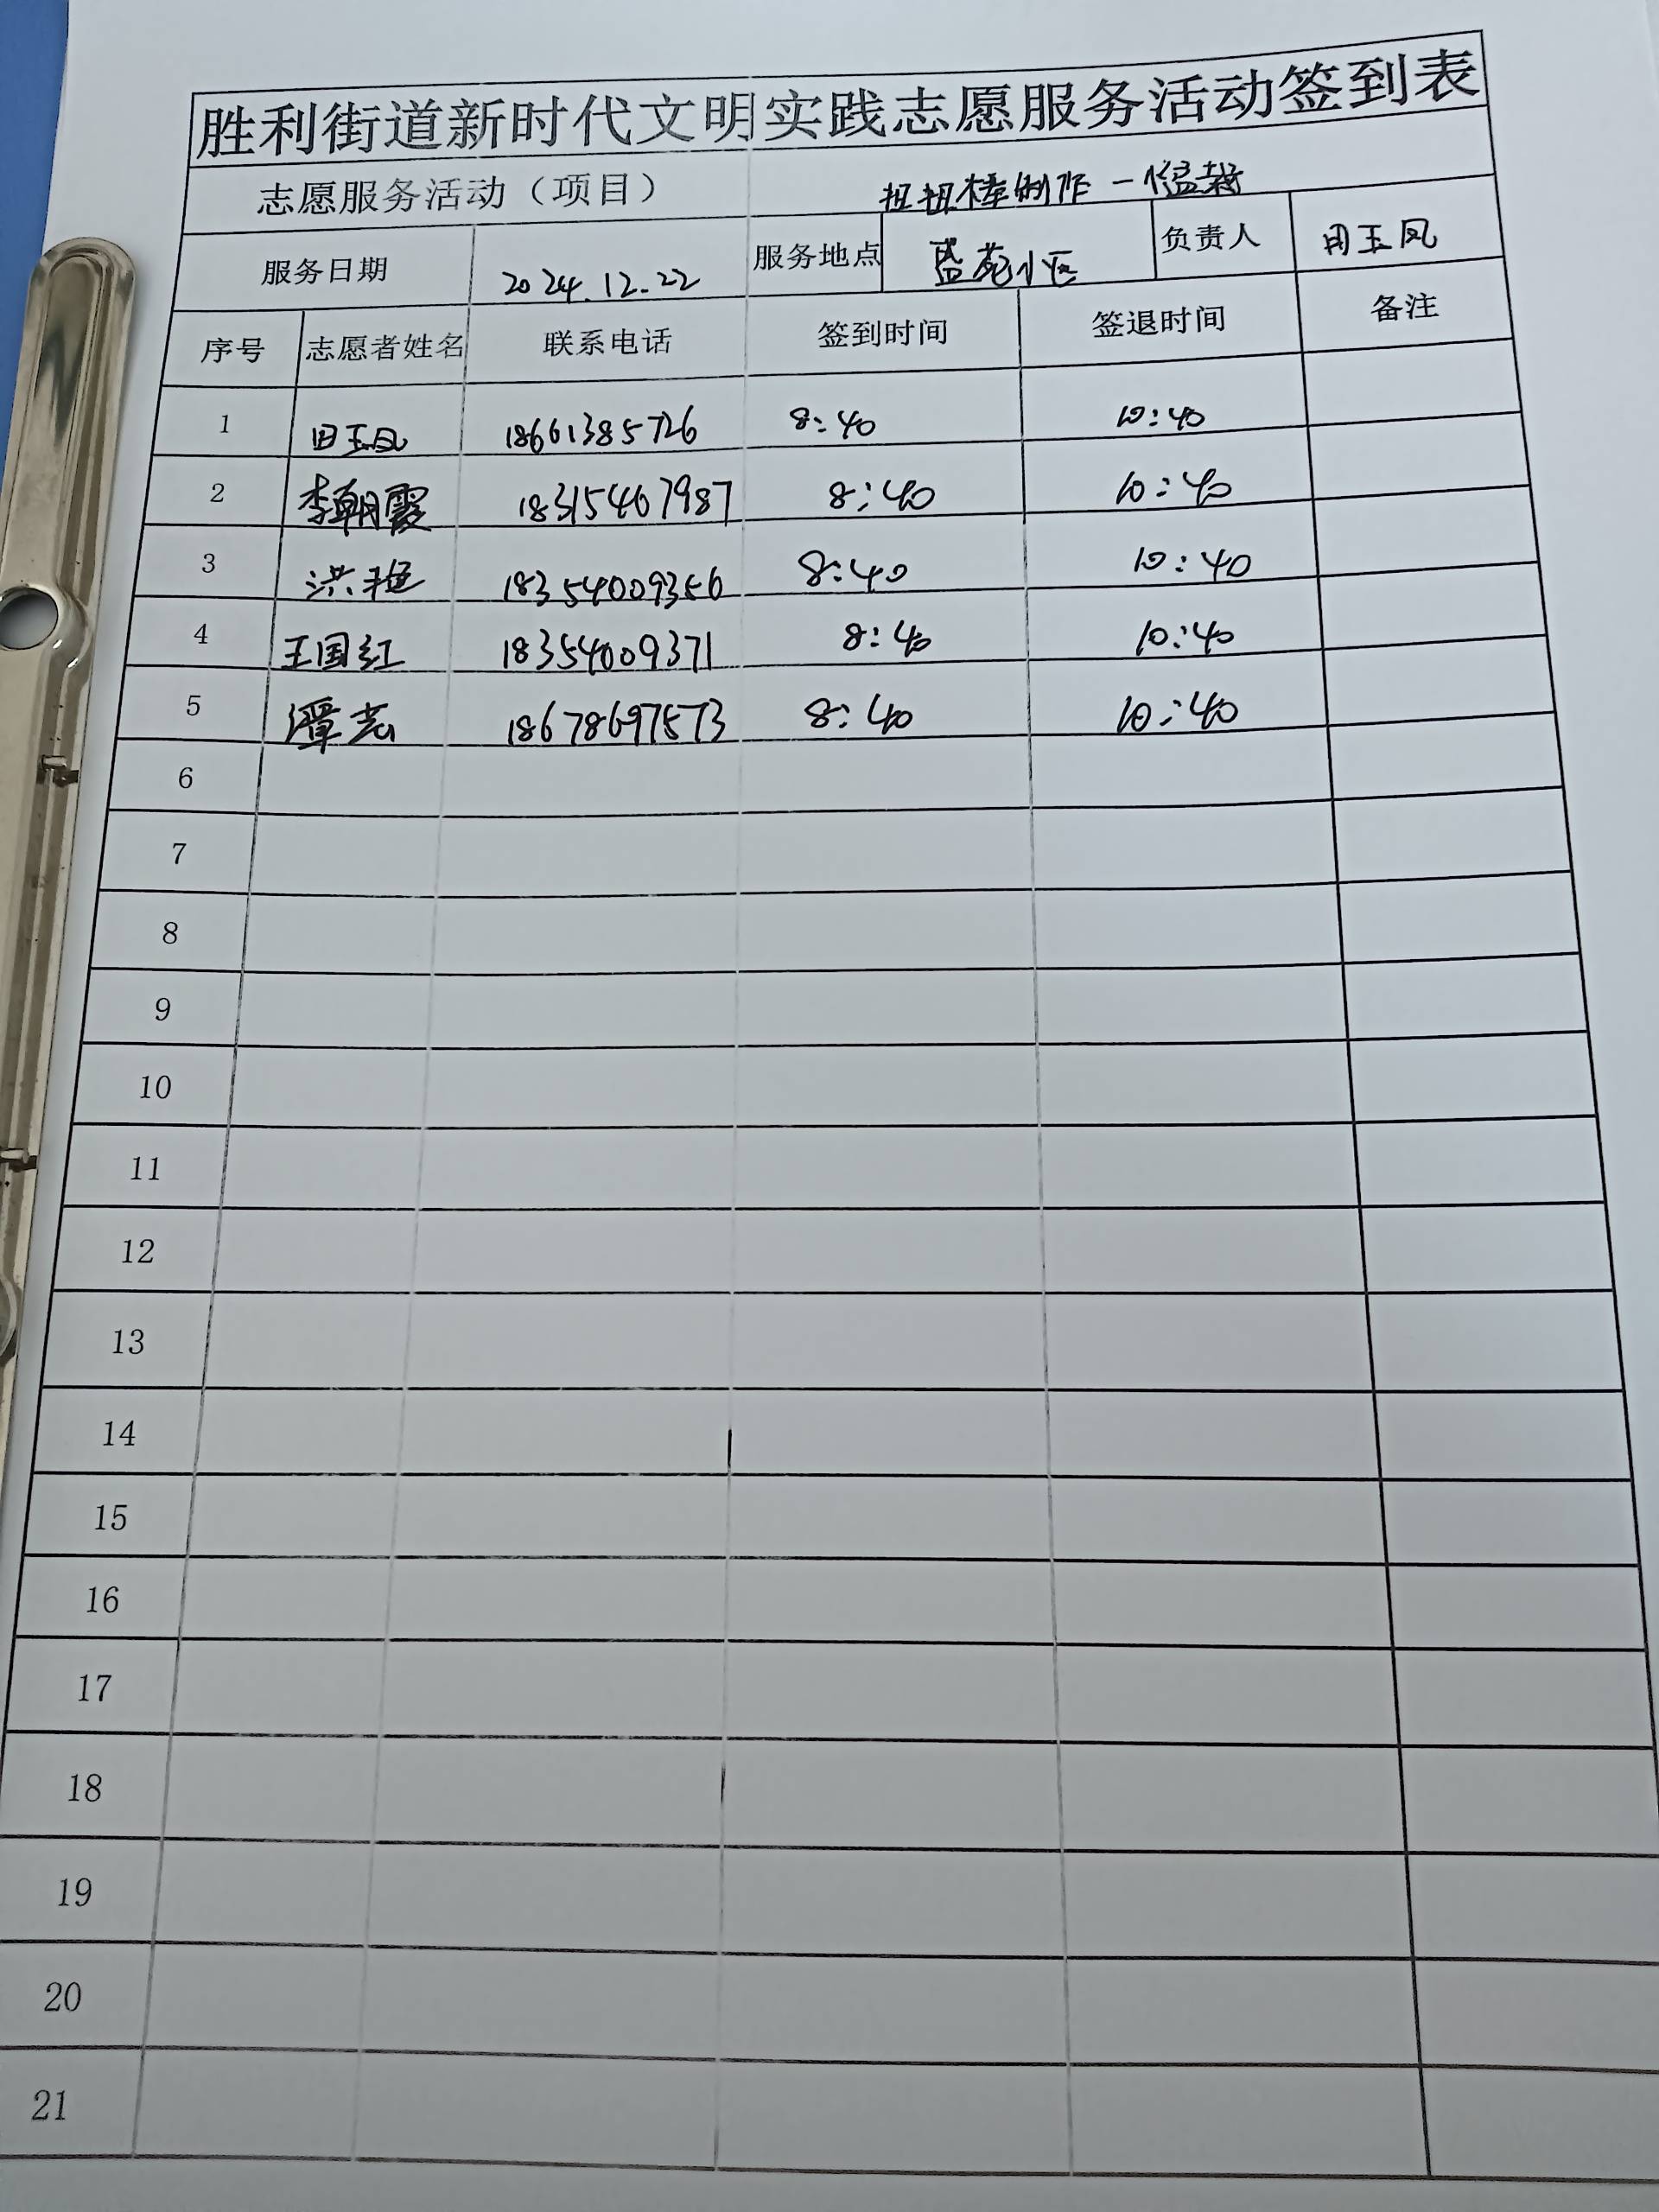 胜利街道新时代文明实践志愿服务活动签到表
志愿服务活动（项目） 扭扭棒制作一盆栽
服务日期 2024.12.22 服务地点 盛苑小区 负责人 田玉凤
序号 志愿者姓名 联系电话 签到时间 签退时间 备注
1 田玉凤 18661385726 8:40 10:40
2 李朝霞 18315467987 8:40 10:40
3 洪艳 18354009356 8:40 10:40
4 王国红 18354009371 8:40 10:40
5 18678697573 8:40 10:40
6
7
8
9
10
11
12
13
14
15
16
17
18
19
20
21